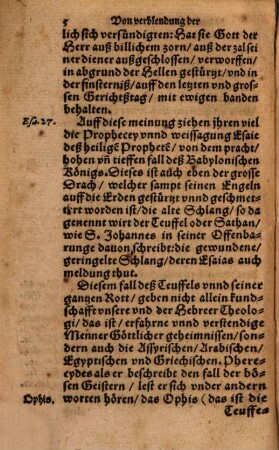 5 Von verblendung der
lich sich versündigten: Hat sie Gott der
Herr auß billichem zorn/ auß der zal sei
ner diener außgeschlossen/ verworffen/
in abgrund der Hellen gestürzt/ vnd in
der finsterniß/ auff den letzten vnd gros
sen Gerichtstag/ mit ewigen banden
behalten.
Esa. 27. Auff diese meinung ziehen jhren viel
die Prophecey vnnd weissagung Esaie
deß heiligẽ Prophetẽ/ von dem pracht/
hohen vñ tieffen fall deß Babylonischen
Königs. Dieses ist auch eben der grosse
Drach/ welcher sampt seinen Engeln
auff die Erden gestürtzt vnd geschmet-
tert worden ist/ die alte Schlang/ so da
genennt wirt der Teuffel oder Sathan/
wie S. Johannes in seiner Offenba-
rung dauon schreibt: die gewundene/
geringelte Schlang/ deren Esaias auch
meldung thut.
Diesem fall deß Teuffels vnnd seiner
gantzen Rott/ geben nicht allein kund-
schafft vnsere vnd der Hebreer Theolo-
gi/ das ist/ erfahrne vnnd verstendige
Menner Göttlicher geheimnissen/ son-
dern auch die Assyrischen/ Arabischen/
Egyptischen vnd Griechischen. Phere-
eydes als er beschreibt den fall der bö-
sen Geistern/ lest er sich vnder andern
Ophis. worten hören/ das Ophis (das ist die
Teuffe-